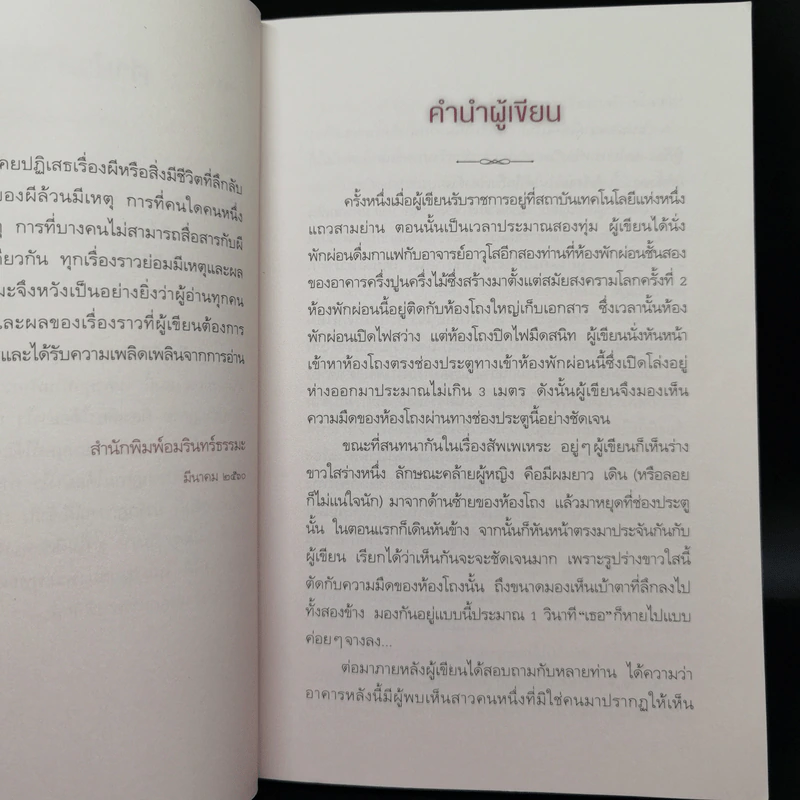 คยปฏิเสธเรื่องผีหรือสิ่งมีชีวิตที่ลึกลับ
ของผีล้วนมีเหตุ การที่คนใดคนหนึ่ง
การที่บางคนไม่สามารถสื่อสารกับผี
ดียวกัน ทุกเรื่องราวย่อมมีเหตุและผล
มะจึงหวังเป็นอย่างยิ่งว่าผู้อ่านทุกคน
และผลของเรื่องราวที่ผู้เขียนต้องการ
และได้รับความเพลิดเพลินจากการอ่าน
สำนักพิมพ์อมรินทร์ธรรมะ
มีนาคม ๒๕๖๐
คำนำผู้เขียน
ครั้งหนึ่งเมื่อผู้เขียนรับราชการอยู่ที่สถาบันเทคโนโลยีแห่งหนึ่ง
แถวสามย่าน ตอนนั้นเป็นเวลาประมาณสองทุ่ม ผู้เขียนได้นั่ง
พักผ่อนดื่มกาแฟกับอาจารย์อาวุโสอีกสองท่านที่ห้องพักผ่อนชั้นสอง
ของอาคารครึ่งปูนครึ่งไม้ซึ่งสร้างมาตั้งแต่สมัยสงครามโลกครั้งที่ 2
ห้องพักผ่อนนี้อยู่ติดกับห้องโถงใหญ่เก็บเอกสาร ซึ่งเวลานั้นห้อง
พักผ่อนเปิดไฟสว่าง แต่ห้องโถงปิดไฟมืดสนิท ผู้เขียนนั่งหันหน้า
เข้าหาห้องโถงตรงช่องประตูทางเข้าห้องพักผ่อนนี้ซึ่งเปิดโล่งอยู่
ห่างออกมาประมาณไม่เกิน 3 เมตร ดังนั้นผู้เขียนจึงมองเห็น
ความมืดของห้องโถงผ่านทางช่องประตูนี้อย่างชัดเจน
ขณะที่สนทนากันในเรื่องสัพเพเหระ อยู่ๆ ผู้เขียนก็เห็นร่าง
ขาวใสร่างหนึ่ง ลักษณะคล้ายผู้หญิง คือมีผมยาว เดิน (หรือลอย
ก็ไม่แน่ใจนัก) มาจากด้านซ้ายของห้องโถง แล้วมาหยุดที่ช่องประตู
นั้น ในตอนแรกก็เดินหันข้าง จากนั้นก็หันหน้าตรงมาประจันกันกับ
ผู้เขียน เรียกได้ว่าเห็นกันจะจะชัดเจนมาก เพราะรูปร่างขาวใสนี้
ตัดกับความมืดของห้องโถงนั้น ถึงขนาดมองเห็นเบ้าตาที่ลึกลงไป
ทั้งสองข้าง มองกันอยู่แบบนี้ประมาณ 1 วินาที “เธอ” ก็หายไปแบบ
ค่อยๆ จางลง...
ต่อมาภายหลังผู้เขียนได้สอบถามกับหลายท่าน ได้ความว่า
อาคารหลังนี้มีผู้พบเห็นสาวคนหนึ่งที่มิใช่คนมาปรากฏให้เห็น